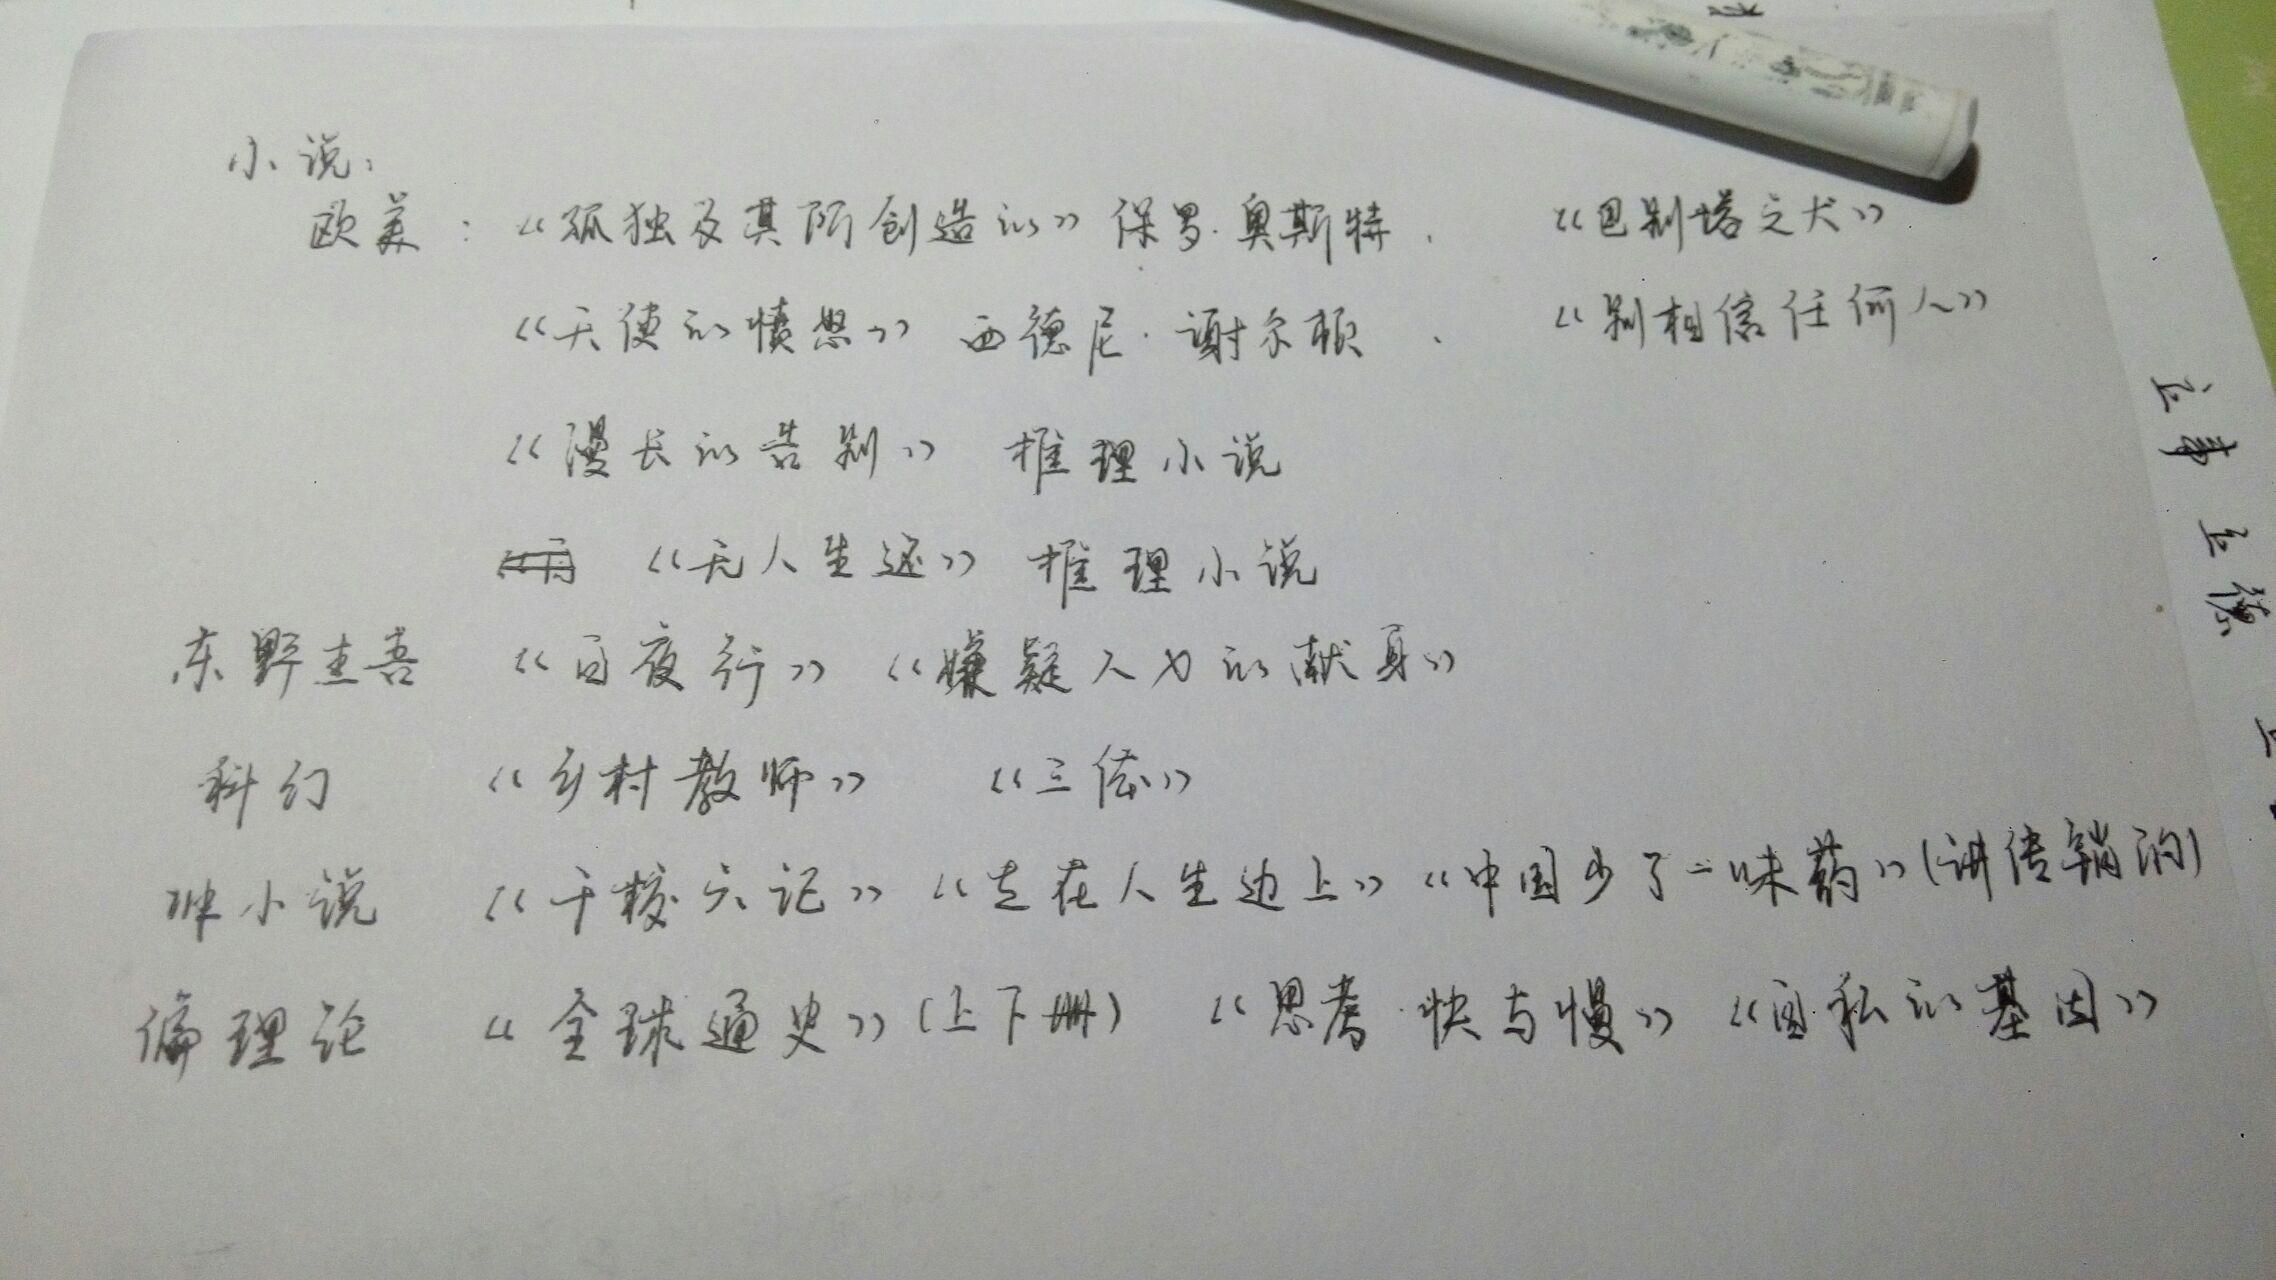 小说：
欧美：《孤独及其所创造的》保罗·奥斯特. 《巴别塔之犬》
《天使的愤怒》西德尼·谢尔顿. 《别相信任何人》
《漫长的告别》 推理小说
《无人生还》 推理小说
东野圭吾 《白夜行》 《嫌疑人X的献身》
科幻 《乡村教师》 《三体》
非小说 《干校六记》《走在人生边上》《中国少了一味药》(讲传销的)
偏理论 《全球通史》(上下册) 《思考·快与慢》 《自私的基因》
立德